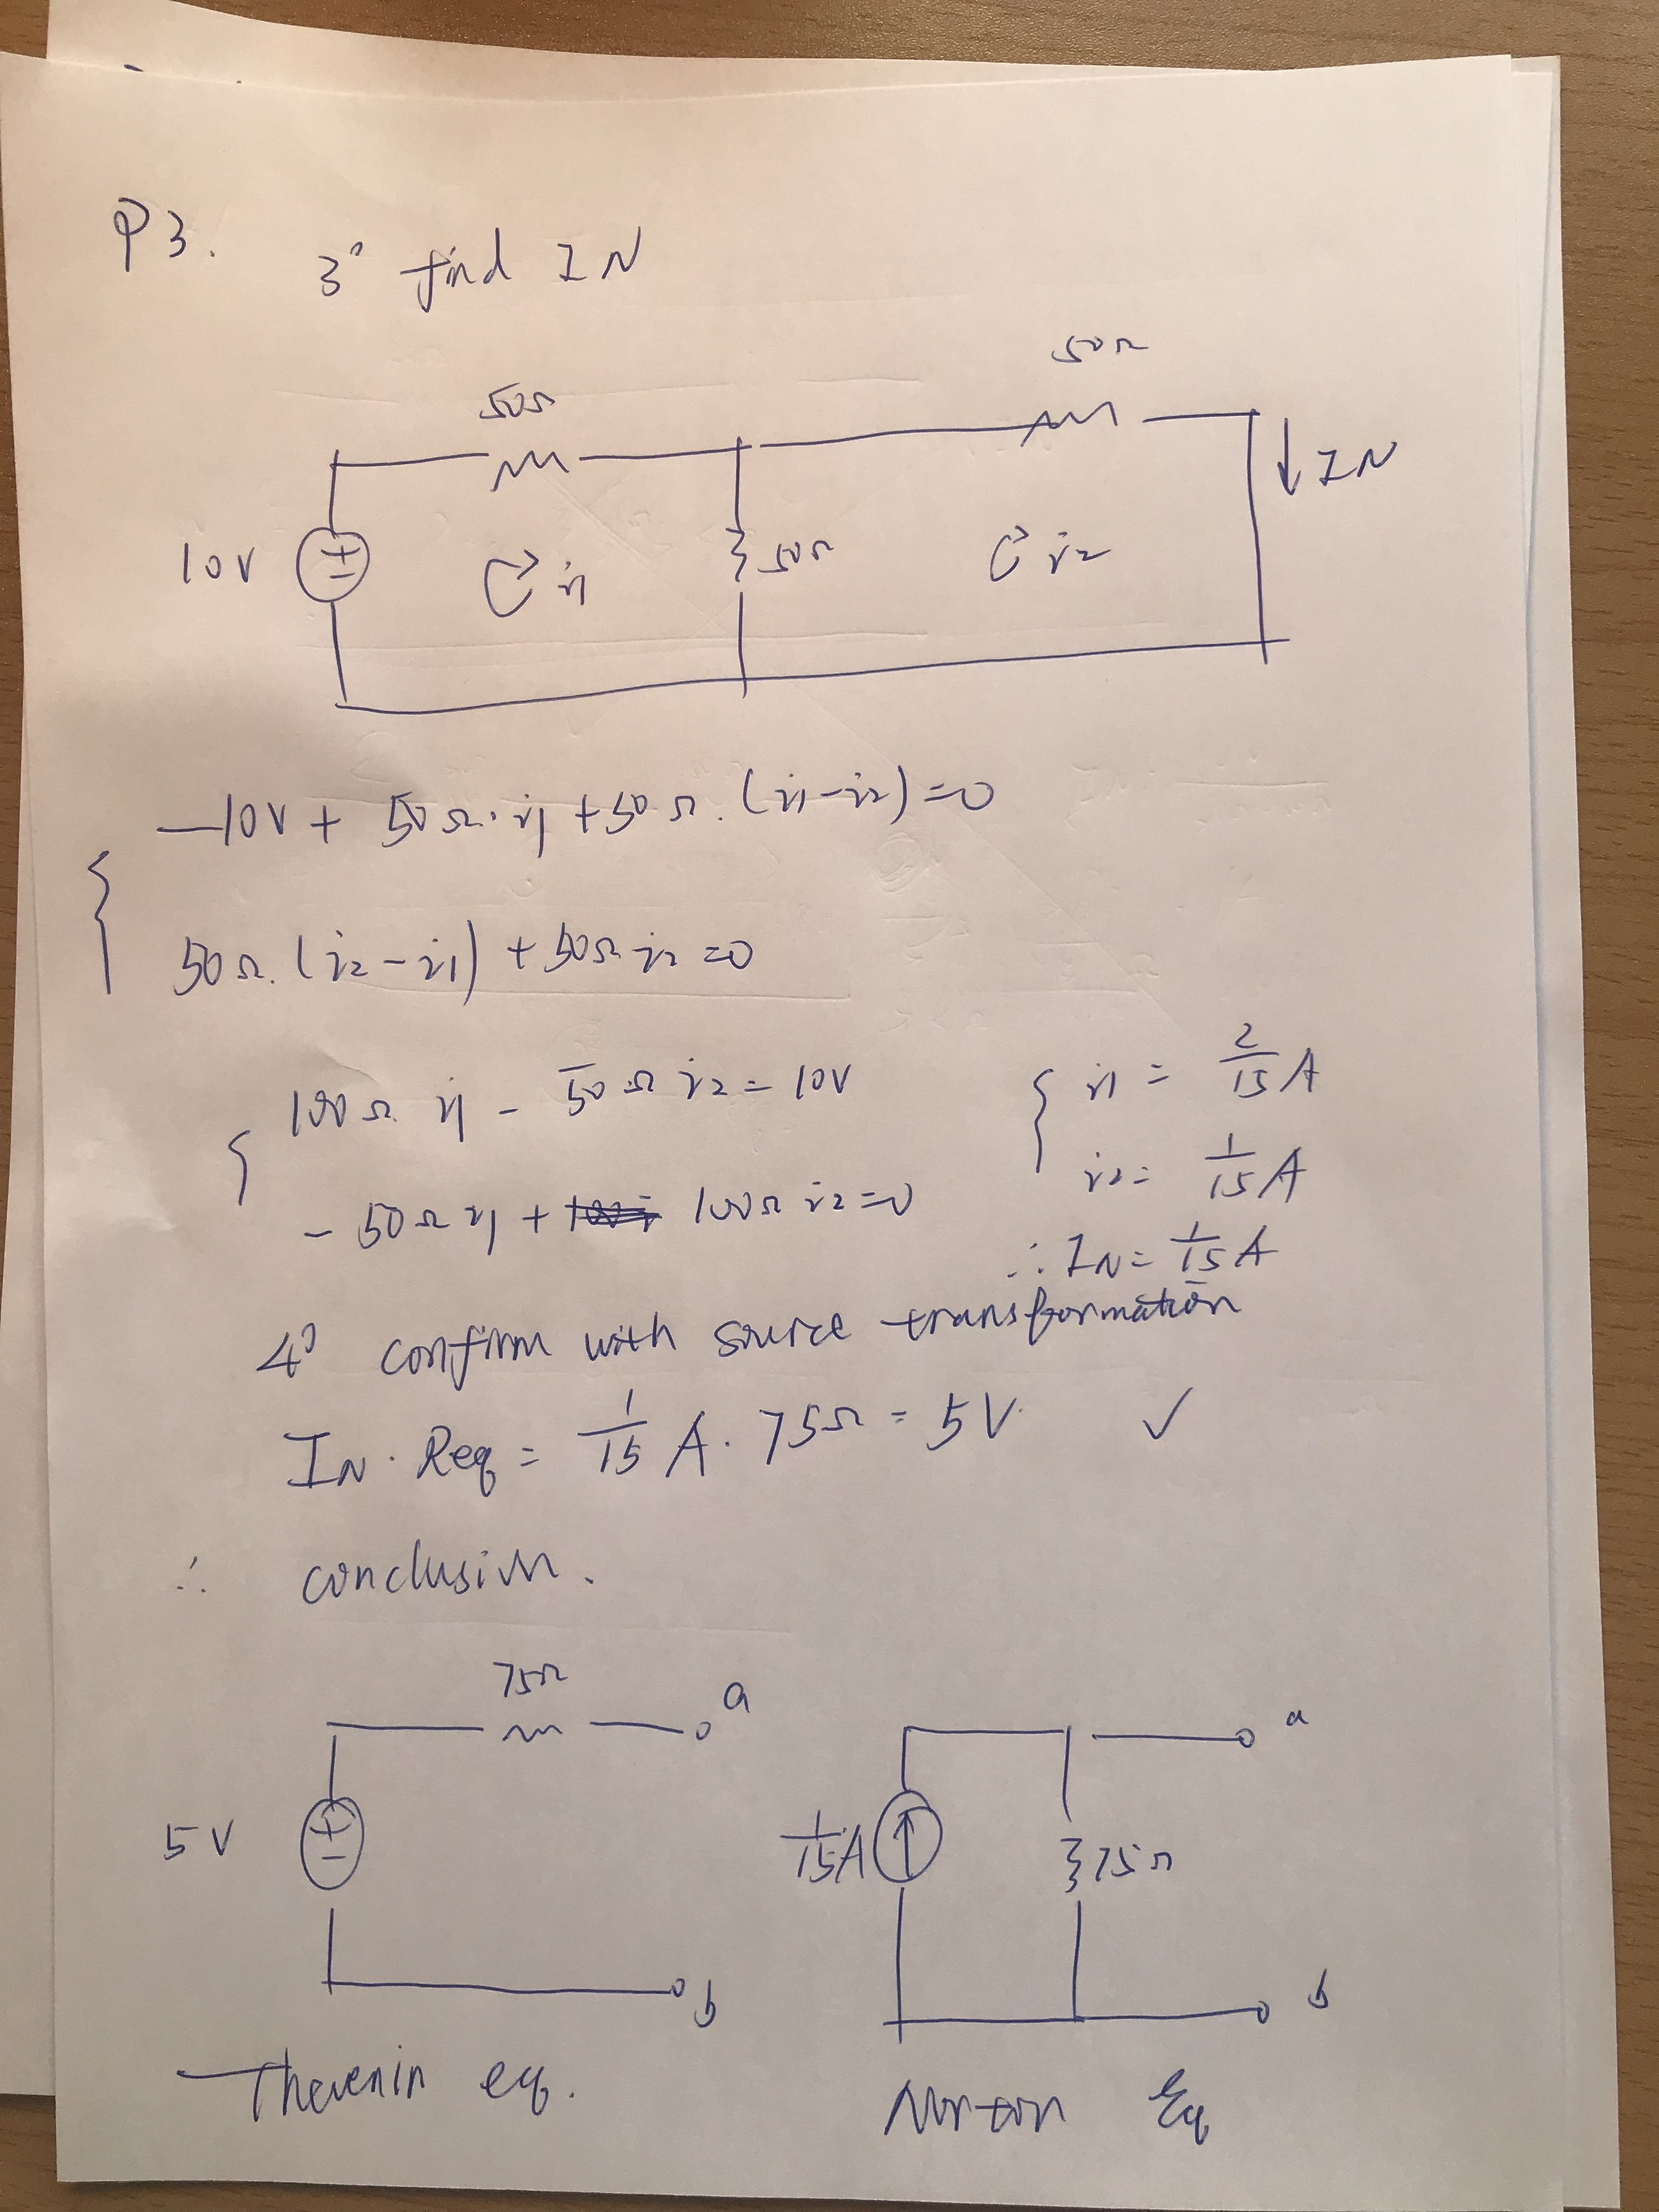 P3. 3° find IN
50Ω
50Ω
10V
+
-
i1
50Ω
i2
IN
-10V + 50Ω·i1 + 50Ω·(i1-i2)=0
50Ω.(i2-i1) + 50Ω i2 =0
100Ω i1 - 50Ω i2 = 10V
i1 = 2/15 A
-50Ω i1 + 100Ω i2=0
i2= 1/15 A
∴ IN= 1/15 A
4° confirm with source transformation
IN · Req = 1/15 A. 75Ω = 5V. ✓
∴ conclusion.
75Ω
a
5V
+
-
b
Thevenin eq.
a
1/15A
75Ω
b
Norton Eq